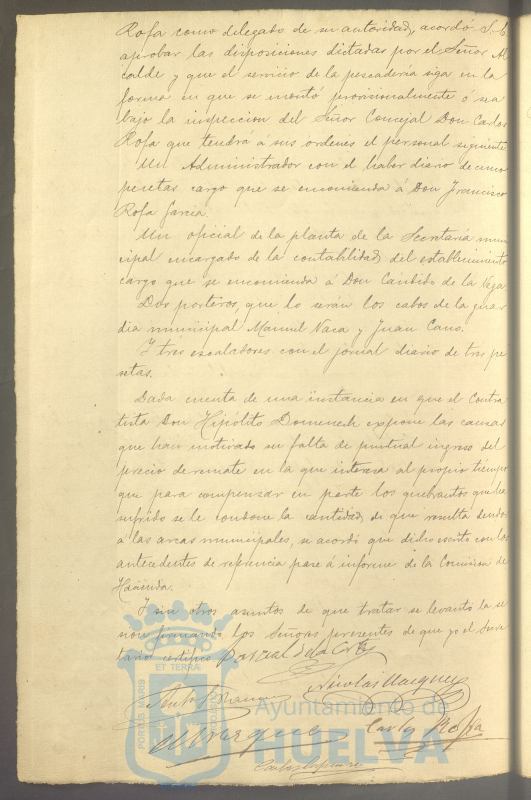 Rofa como delegado de su autoridad, acordó S. E.
aprobar las disposiciones dictadas por el Señor Al
calde y que el servicio de la pescadería siga en la
forma en que se montó provisionalmente ó sea
bajo la inspeccion del Señor Concejal Don Carlos
Rofa que tendra á sus ordenes el personal siguiente
Un Administrador con el haber diario de cinco
pesetas cargo que se encomienda á Don Francisco
Rofa Garcia.
Un oficial de la planta de la Secretaría muni
cipal encargado de la contabilidad del establecimiento
cargo que se encomienda á Don Cándido de la Vega.
Dos porteros, que lo serán los cabos de la guar
dia municipal Manuel Vaca y Juan Cano.
Y tres escaladores con el jornal diario de tres pe
setas.
Dada cuenta de una instancia en que el Contra
tista Don Hipólito Domenech expone las causas
que han motivado su falta de puntual ingreso del
precio de remate en la que interesa al propio tiempo
que para compensar en parte los quebrantos que ha
sufrido se le condone la cantidad, de que resulta deudor
a las arcas municipales, se acordó que dicho escrito con los
antecedentes de referencia pase á informe de la Comision de
Hacienda.
Y sin otros asuntos de que tratar se levantó la se
sion firmando los Señores presentes de que yo el Secre
tario certifico
Nicolas Vazquez
Carlos Rofa
PORTUS MARIS
ET TERRÆ
CUSTODIA
Ayuntamiento de
HUELVA